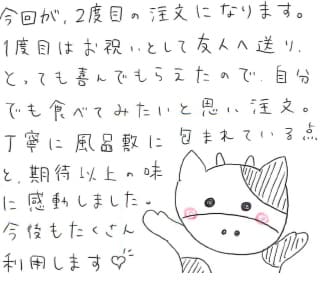 今回が、2度目の注文になります。
1度目はお祝いとして友人へ送り、
とっても喜んでもらえたので、自分
でも食べてみたいと思い注文。
丁寧に風呂敷に包まれている点
と、期待以上の味
に感動しました。
今後もたくさん
利用します♡